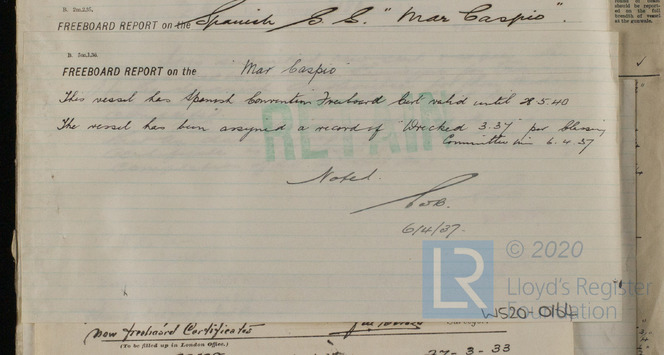 FREEBOARD REPORT on the Spanish S.S. "Mar Caspio".
FREEBOARD REPORT on the "Mar Caspio"
This vessel has Spanish Convention Freeboard Cert valid until 5.40
The vessel has been assigned a record of "Wrecked 3.37" per Classing
Committee min 6.4.37
RETAIN
Noted.
6/4/37.
LR
© 2020
Lloyd's Register
Foundation
WS20-0164
New Freeboard Certificates
(To be filled up in London Office.)
27-3-33